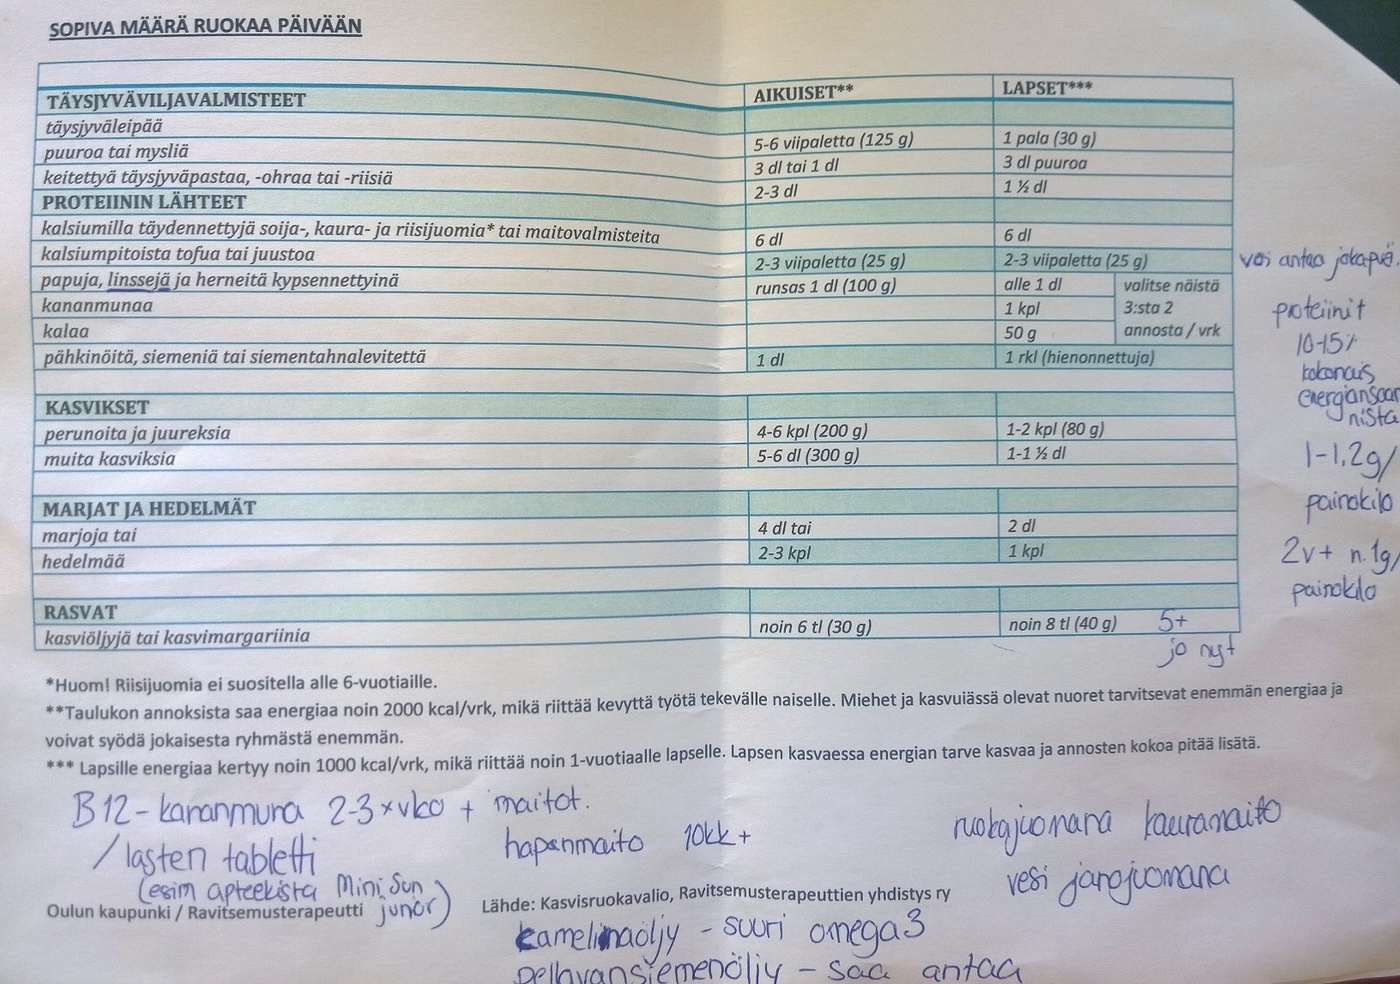 SOPIVA MÄÄRÄ RUOKAA PÄIVÄÄN
TÄYSJYVÄVILJAVALMISTEET AIKUISET** LAPSET***
täysjyväleipää 5-6 viipaletta (125 g) 1 pala (30 g)
puuroa tai mysliä 3 dl tai 1 dl 3 dl puuroa
keitettyä täysjyväpastaa, -ohraa tai -riisiä 2-3 dl 1 ½ dl
PROTEIININ LÄHTEET
kalsiumilla täydennettyjä soija-, kaura- ja riisijuomia* tai maitovalmisteita 6 dl 6 dl
kalsiumpitoista tofua tai juustoa 2-3 viipaletta (25 g) 2-3 viipaletta (25 g) voi antaa jokapvä.
papuja, linssejä ja herneitä kypsennettyinä runsas 1 dl (100 g) alle 1 dl valitse näistä
kananmunaa 1 kpl 3:sta 2
kalaa 50 g annosta / vrk
pähkinöitä, siemeniä tai siementahnalevitettä 1 dl 1 rkl (hienonnettuja)
proteiinit
10-15%
kokonais
energiansaan
nista
1-1,2g/
painokilo
2v+ n. 1g/
painokilo
KASVIKSET
perunoita ja juureksia 4-6 kpl (200 g) 1-2 kpl (80 g)
muita kasviksia 5-6 dl (300 g) 1-1 ½ dl
MARJAT JA HEDELMÄT
marjoja tai 4 dl tai 2 dl
hedelmää 2-3 kpl 1 kpl
RASVAT
kasviöljyjä tai kasvimargariinia noin 6 tl (30 g) noin 8 tl (40 g) 5+
jo nyt
*Huom! Riisijuomia ei suositella alle 6-vuotiaille.
**Taulukon annoksista saa energiaa noin 2000 kcal/vrk, mikä riittää kevyttä työtä tekevälle naiselle. Miehet ja kasvuiässä olevat nuoret tarvitsevat enemmän energiaa ja
voivat syödä jokaisesta ryhmästä enemmän.
*** Lapsille energiaa kertyy noin 1000 kcal/vrk, mikä riittää noin 1-vuotiaalle lapselle. Lapsen kasvaessa energian tarve kasvaa ja annosten kokoa pitää lisätä.
B12 - kananmuna 2-3 x vko + maitot.
/ lasten tabletti
(esim apteekista Mini Sun
junior)
hapanmaito 10kk+
ruokajuomana kauramaito
vesi janojuomana
Oulun kaupunki / Ravitsemusterapeutti
Lähde: Kasvisruokavalio, Ravitsemusterapeuttien yhdistys ry
Camelinaöljy - suuri omega3
pellavansiemenöljy - saa antaa